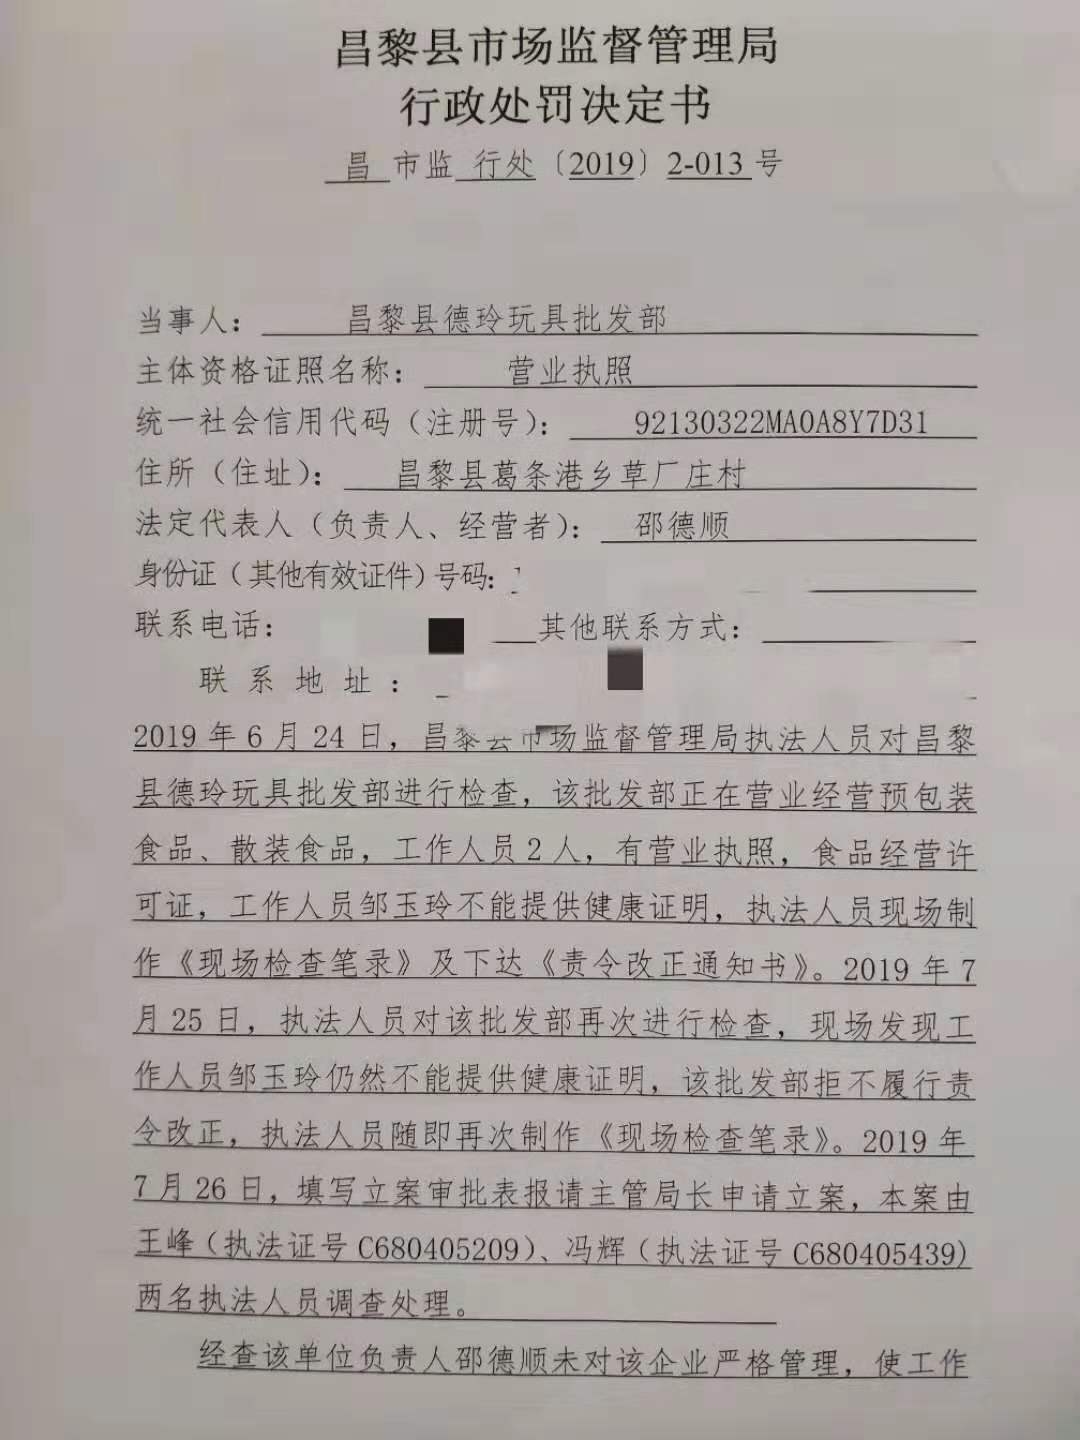 昌黎县市场监督管理局
行政处罚决定书
昌 市监 行处〔2019〕2-013 号
当事人： 昌黎县德玲玩具批发部
主体资格证照名称： 营业执照
统一社会信用代码（注册号）： 92130322MA0A8Y7D31
住所（住址）： 昌黎县葛条港乡草厂庄村
法定代表人（负责人、经营者）： 邵德顺
身份证（其他有效证件）号码：
联系电话： 其他联系方式：
联系地址：
2019 年 6 月 24 日，昌黎县市场监督管理局执法人员对昌黎
县德玲玩具批发部进行检查，该批发部正在营业经营预包装
食品、散装食品，工作人员 2 人，有营业执照，食品经营许
可证，工作人员邹玉玲不能提供健康证明，执法人员现场制
作《现场检查笔录》及下达《责令改正通知书》。2019 年 7
月 25 日，执法人员对该批发部再次进行检查，现场发现工
作人员邹玉玲仍然不能提供健康证明，该批发部拒不履行责
令改正，执法人员随即再次制作《现场检查笔录》。2019 年
7 月 26 日，填写立案审批表报请主管局长申请立案，本案由
王峰（执法证号 C680405209）、冯辉（执法证号 C680405439)
两名执法人员调查处理。
经查该单位负责人邵德顺未对该企业严格管理，使工作